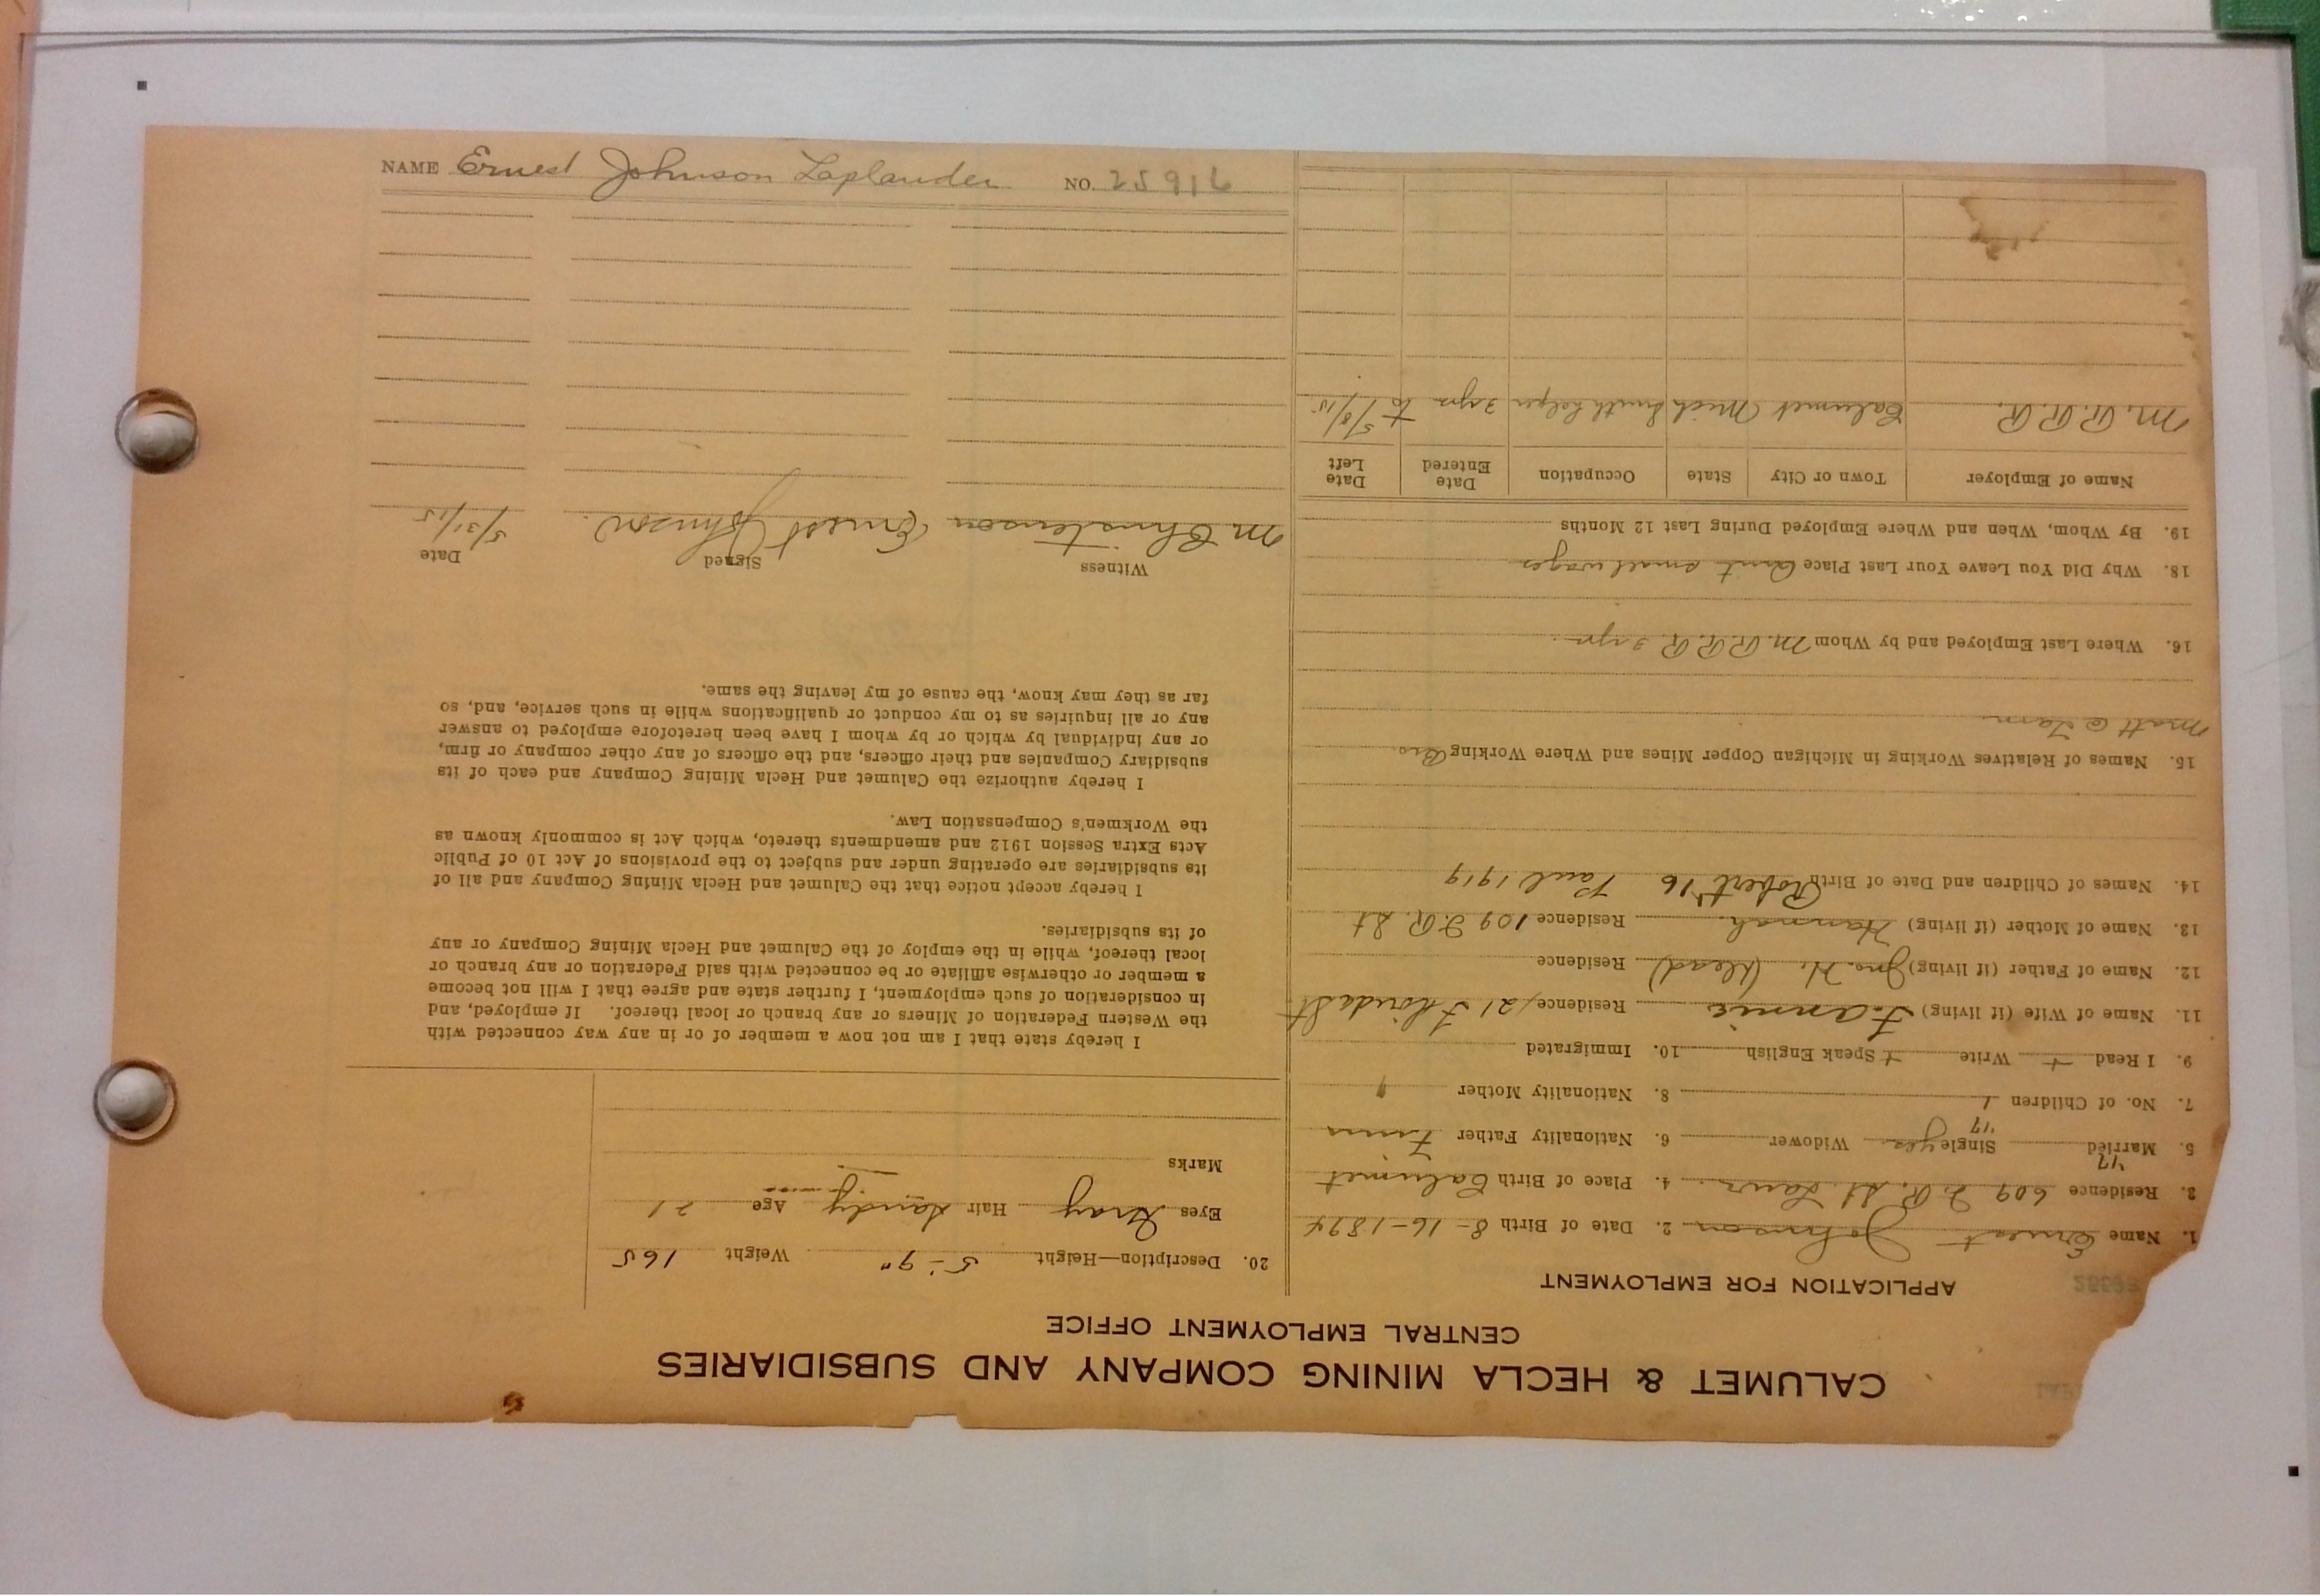 NAME Ernest Johnson Laplander NO. 25916
CALUMET & HECLA MINING COMPANY AND SUBSIDIARIES
CENTRAL EMPLOYMENT OFFICE
APPLICATION FOR EMPLOYMENT
1. Name Ernest Johnson 2. Date of Birth 8-16-1894
3. Residence 609 I.R. St. Laur. 4. Place of Birth Calumet
'17 '17
5. Married Single yes Widower 6. Nationality Father Finn
7. No. of Children 1 8. Nationality Mother "
9. I Read + Write + Speak English 10. Immigrated
11. Name of Wife (if living) Fannie Residence 121 Florida St
12. Name of Father (if living) Jno. H. (dead) Residence
13. Name of Mother (if living) Hannah Residence 109 I.R. St
14. Names of Children and Date of Birth Robert '16 Paul 1919
15. Names of Relatives Working in Michigan Copper Mines and Where Working Bro
Matt @ Tam
16. Where Last Employed and by Whom M.R.R.R. 3 yrs
18. Why Did You Leave Your Last Place Quit small wages
19. By Whom, When and Where Employed During Last 12 Months
Name of Employer Town or City State Occupation Date Entered Date Left
M.R.R.R. Calumet Mich Smith helper 3 yrs to 5/8/15
20. Description—Height 5-9" Weight 165
Eyes Gray Hair Sandy Age 21
Marks
I hereby state that I am not now a member of or in any way connected with
the Western Federation of Miners or any branch or local thereof. If employed, and
in consideration of such employment, I further state and agree that I will not become
a member or otherwise affiliate or be connected with said Federation or any branch or
local thereof, while in the employ of the Calumet and Hecla Mining Company or any
of its subsidiaries.
I hereby accept notice that the Calumet and Hecla Mining Company and all of
its subsidiaries are operating under and subject to the provisions of Act 10 of Public
Acts Extra Session 1912 and amendments thereto, which Act is commonly known as
the Workmen's Compensation Law.
I hereby authorize the Calumet and Hecla Mining Company and each of its
subsidiary Companies and their officers, and the officers of any other company or firm,
or any individual by which or by whom I have been heretofore employed to answer
any or all inquiries as to my conduct or qualifications while in such service, and, so
far as they may know, the cause of my leaving the same.
Witness Signed Date
M Christenson Ernest Johnson. 5/31/15